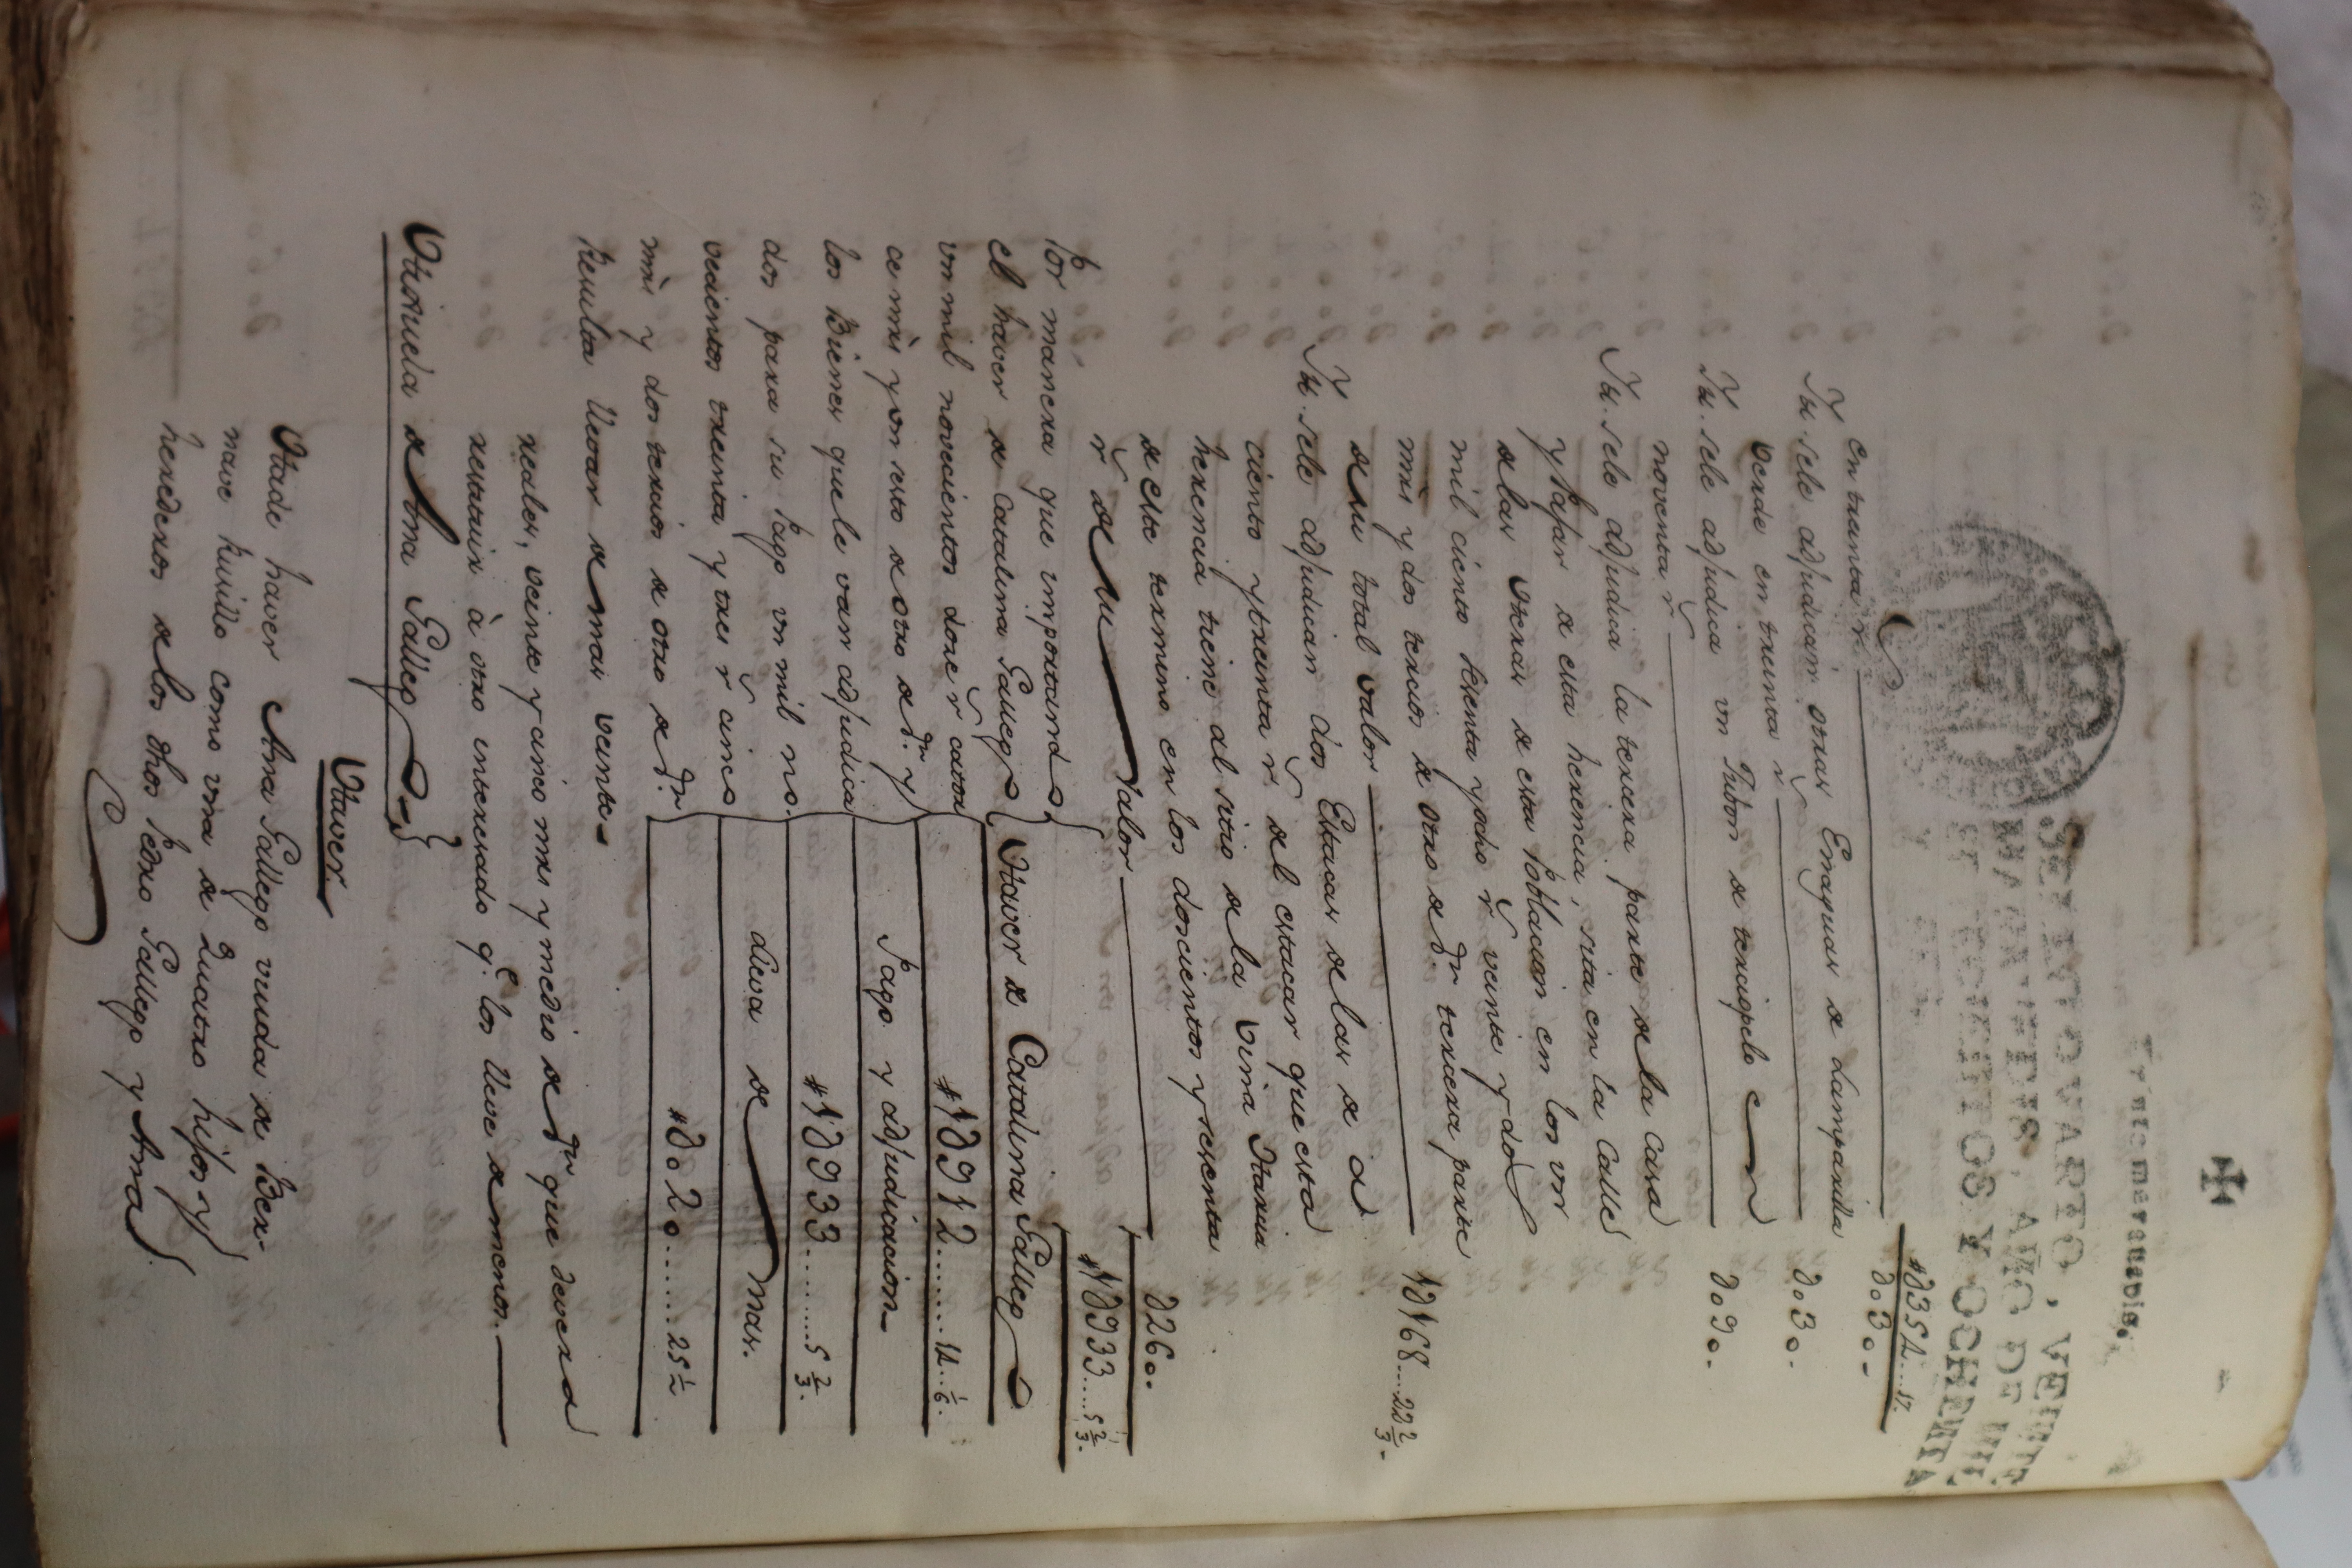 Veynte maravedis.
SELLO QVARTO, VEINTE
MARAVEDIS, AÑO DE MIL
SETECIENTOS Y OCHENTA
Y
#∂352....17.
en treinta rˢ ∂.30.-
Yt. sele adjudican otras Enaguas de Lamparilla
verde en treinta rˢ ∂.30.
Yt. sele adjudica un Jubon de terciopelo en
noventa rˢ ∂.90.
Yt. sele adjudica la tercera parte de la Casa
y Pajar de esta herencia, sita en la Calle
de las Heras de esta Poblacion en los un
mil ciento sesenta y ocho rˢ veinte y dos
mrs y dos tercios de otro de dha tercera parte
de su total valor 1∂168...22 2/3.
Yt. sele adjudican dos Estacas de las de a
ciento y treinta rˢ del estacar que esta
herencia tiene al sitio de la Viña Maria
de este termino en los doscientos y sesenta
rˢ de su Valor ∂260.
#1∂933....5 2/3.
Por manera que importando
el haver de Catalina Gallego Haver de Catalina Gallego
un mil novecientos doze rˢ cator #1∂912.......14..1/6.
ce mrs y un sesto de otro de dn. y
los Bienes que le van adjudica Pago y adjudicacion
dos para su Pago un mil no. #1∂933.......5 2/3.
vecientos treinta y tres rˢ cinco
mrs y dos tercios de otro de dn lleva de mas.
Resulta llevar de mas veinte #∂.20......25 1/2
reales, veinte y cinco mrs y medio de dn que devera
restituir à otro interesado q.e los lleve de menos.
Hijuela de Ana Gallego
Haver.
Ha de haver Ana Gallego viuda de Ber-
nave Murillo como una de Quatro hijos y
herederos de los dhos Pedro Gallego y Ana